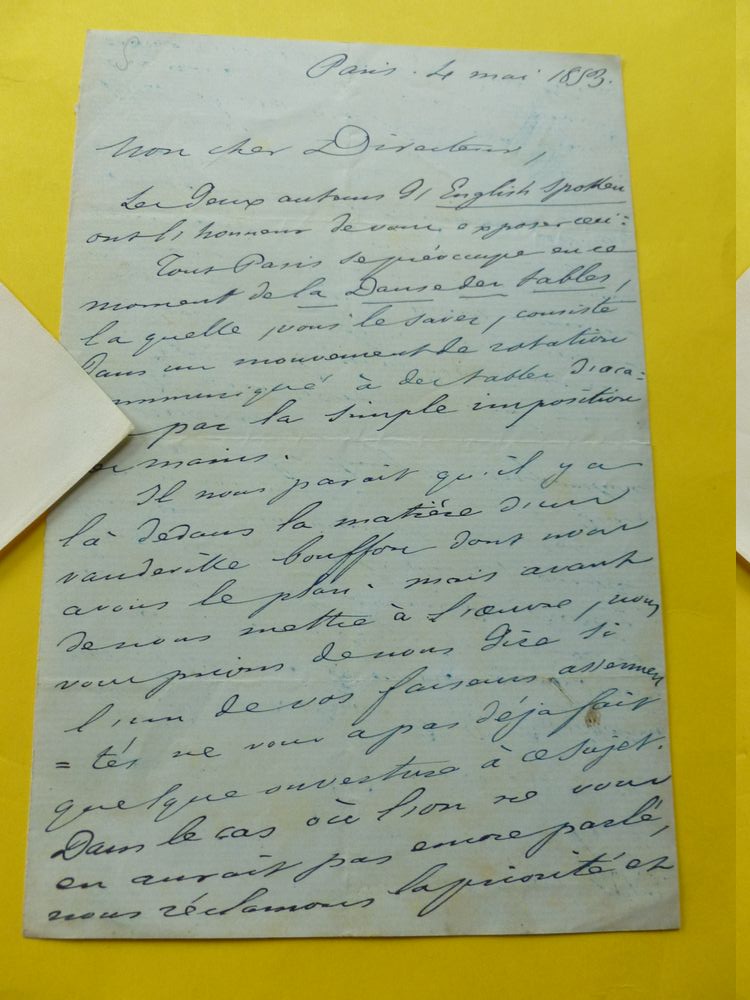 Paris. 4 mai 1853.
Mon cher Directeur,
Les deux auteurs d'English Spoken
ont l'honneur de vous exposer ceci:
Tout Paris se préoccupe en ce
moment de la Danse des tables,
la quelle, vous le savez, consiste
Dans un mouvement de rotation
mmuniqué à des tables d'aca=
par la simple imposition
mains.
Il nous parait qu'il y a
là dedans la matière d'un
vaudeville bouffon dont nous
avons le plan. mais avant
de nous mettre à l'œuvre, nous
vous prions de nous dire si
l'un de vos faiseurs assermen
= tés ne vous a pas déjà fait
quelque ouverture à ce sujet.
Dans le cas où l'on ne vous
en aurait pas encore parlé,
nous réclamons la priorité et